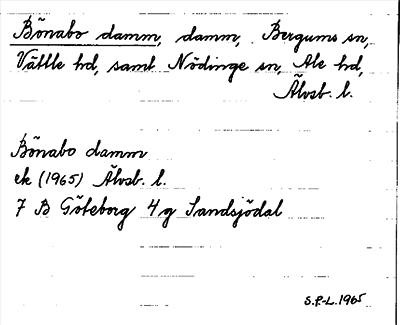 Bönabo damm, damm, Bergums sn,
Vättle hd, samt Nödinge sn, Ale hd,
Älvsb. l.
Bönabo damm
ek (1965) Älvsb. l.
7 B Göteborg 4 g Sandsjödal
S.F-L. 1965